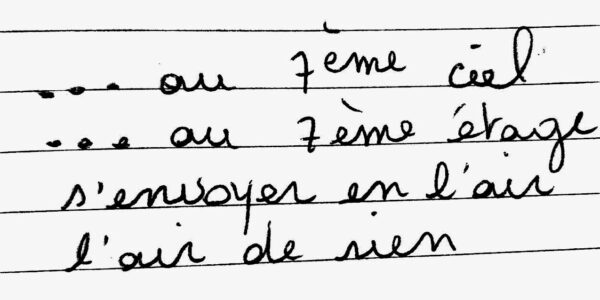 ... au 7ème ciel
... au 7ème étage
s'envoyer en l'air
l'air de rien